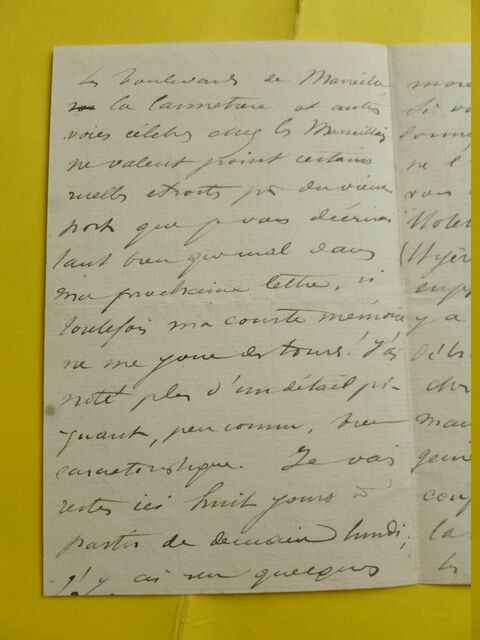 les boulevards de Marseille
la Cannetière et autres
voies célèbres chez les Marseillais
ne valent point certaines
ruelles étroites du vieux
port que je vous décrirai
tant bien que mal dans
ma prochaine lettre, si
toutefois ma courte mémoire
ne me joue des tours! J'ai
noté plus d'un détail pi-
quant, peu connu, bien
caractéristique. Je vais
rester ici huit jours à
partir de demain lundi,
j'y ai vu quelques
mon
Si vo
donne
ne l
vous
Hotel
(Hyèr
y a
cou
la